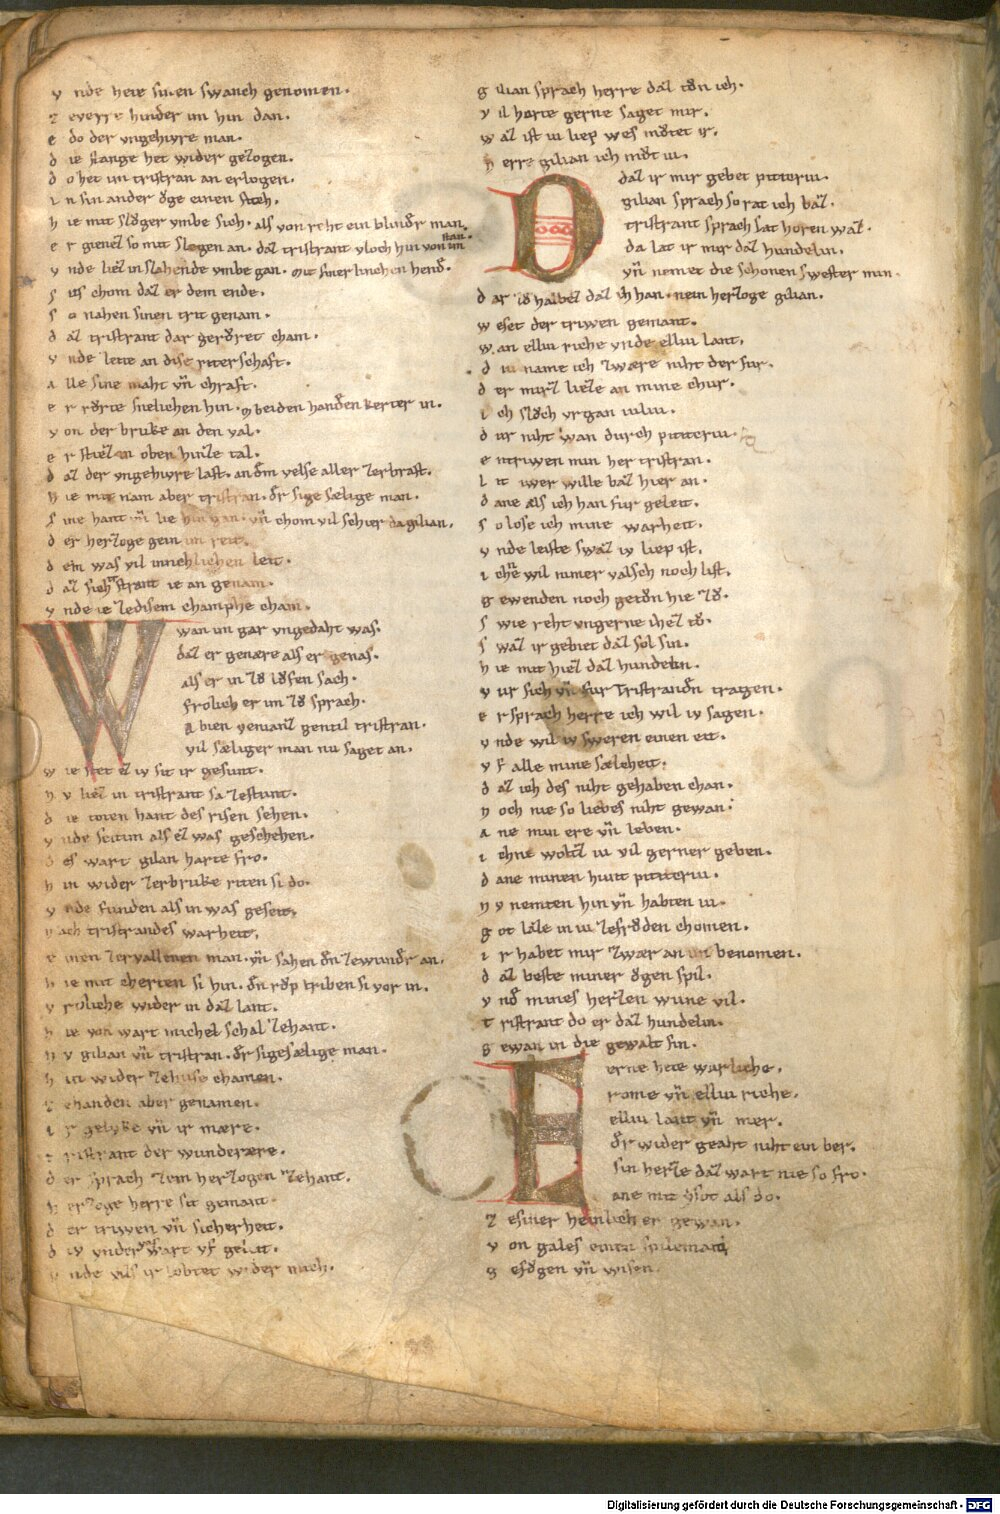 v nde hete sinen swanch genomen.
z everre hinder im hin dan.
e do der vngehivre man.
d ie stange het wider gezogen.
d o het im tristran an erlogen.
i n sin ander ŏge einen stich.
h ie mit slŏger vmbe sich. als von reht ein blindr man.
e r gienez so mit slegen an. daz tristrant vloch hin von im stan.
v nde liez in slahende vmbe gan. mit siner linchen hend.
s us chom daz er dem ende.
s o nahen sinen trit genam.
d az tristrant dar gerŏret cham.
v nde leite an dise riterschaft.
a lle sine maht vn chraft.
e r rŏrte sneliehen hin. m beiden handen kerter in.
v on der bruke an den val.
e r stiez in oben hin ze tal.
d az der vngehivre last. an dm velse aller zerbrast.
h ie mit nam aber tristran. dr sige sælige man.
s ine hant vn lie hin gan. vn chom vil schier da gilian.
d er herzoge gein im reit.
d em was vil innehliehen leit.
d az sich tristrant ie an genam.
v nde ie ze disem champhe cham.
W wan im gar vngedaht was.
daz er genære als er genas.
als er in zŏ lŏfen sach.
frolich er im zŏ sprach.
a bien veniant gentil tristran.
vil sæliger man nu saget an.
w ie stet ez iv sit ir gesunt.
n v liez in tristrant sa zestunt.
d ie toten hant des risen sehen.
v nde seitim als ez was geschehen.
d es wart gilan harte fro.
h in wider zer bruke riten si do.
v nde funden als in was geseit.
n ach tristrandes warheit.
e inen zervallenen man. vn sahen dn ze wundr an.
h ie mit cherten si hin. dn rŏp triben si vor in.
v roliche wider in daz lant.
h ie von wart michel schal zehant.
n v gilian vn tristran. dr sigesælige man.
h in wider ze huse chamen.
z ehanden aber genamen.
i r gelvke vn ir mære.
t ristrant der wunderære.
d er sprach zem herzogen zehant.
h erzoge herre sit gemant.
d er triwen vn sicherheit.
d iv vnder vns wart vf geleit.
v nde vils ir lobtet wider mich.
g ilian sprach herre daz tŏn ich.
v il harte gerne saget mir.
w az ist iu liep wes mŏtet ir.
h erre gilian ich mŏt iu.
D daz ir mir gebet pititeriu.
gilian sprach so rat ich baz.
tristrant sprach lat horen waz.
da lat ir mir daz hundelin.
vn nemet die schonen swester min.
d ar zŏ halbez daz ich han. nein herzoge gilian.
w eset der triwen gemant.
w an elliu riche vnde elliu lant.
d iu name ich zwære niht der fur.
d er mirz lieze an mine chur.
i ch slŏch vrgan iuliu.
d ur niht wan durch pititeriu.
e ntriwen min her tristran.
l it iwer wille baz hier an.
d ane als ich han fur geleit.
s o lose ich mine warheit.
v nde leiste swaz iv liep ist.
i chn wil nimer valsch noch list.
g ewenden noch getŏn hie zŏ.
s wie reht vngerne ihez tŏ.
s waz ir gebiet daz sol sin.
h ie mit hiez daz hundelin.
v ur sich vn fur Tristrandn tragen.
e r sprach herre ich wil iv sagen.
v nde wil iv sweren einen eit.
v f alle mine sælcheit.
d az ich des niht gehaben chan.
n och nie so liebes niht gewan.
a ne min ere vn leben.
i chne woltz iu vil gerner geben.
d ane minen hunt pititeriu.
n v nemten hin vn habten iu.
g ot laze in iu ze frŏden chomen.
i r habet mir zwær an im benomen.
d az beste miner ŏgen spil.
v nd mines herzen wune vil.
t ristrant do er daz hundelin.
g ewan in die gewalt sin.
E erne hete warliche.
rome vn elliu riche.
elliu lant vn mer.
dr wider geaht niht ein ber.
sin herze daz wart nie so fro.
ane mit ysot als do.
z e siner heinlich er gewan.
v on gales einen spileman.
g efŏgen vn wisen.
Digitalisierung gefördert durch die Deutsche Forschungsgemeinschaft - DFG